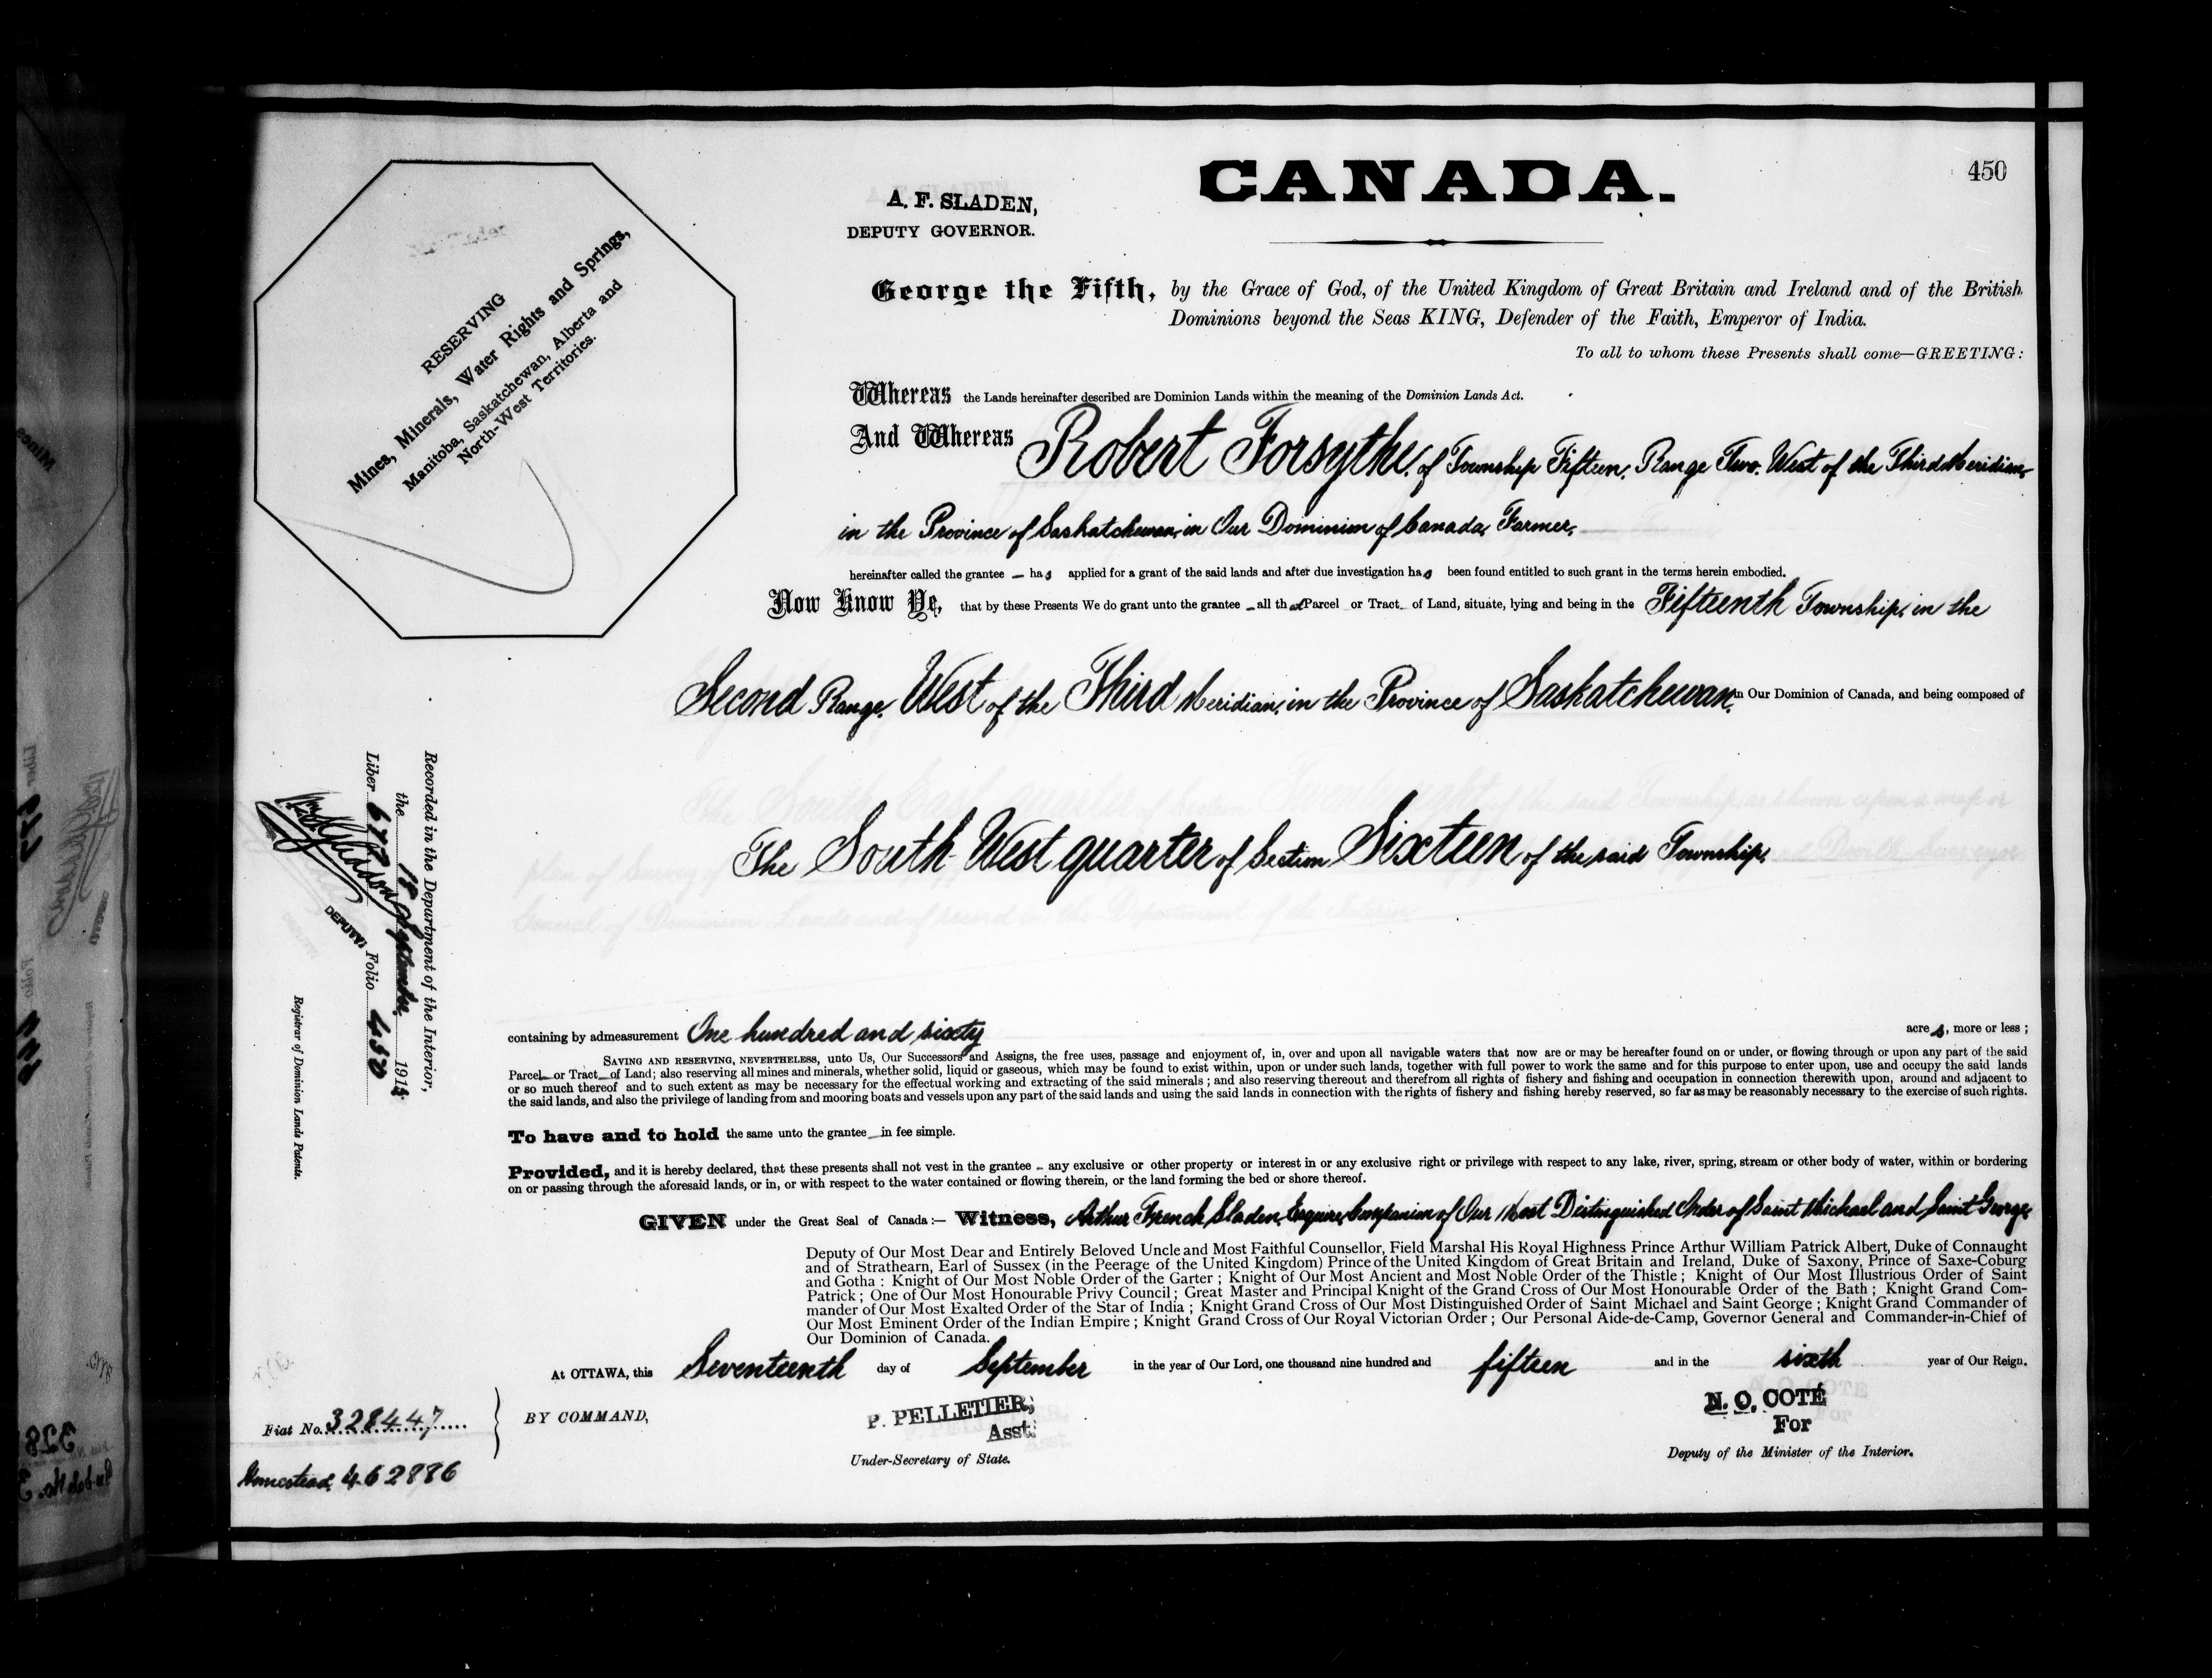 CANADA.
450
A. F. SLADEN,
DEPUTY GOVERNOR.
RESERVING
Mines, Minerals, Water Rights and Springs,
Manitoba, Saskatchewan, Alberta and
North-West Territories.
George the Fifth, by the Grace of God, of the United Kingdom of Great Britain and Ireland and of the British
Dominions beyond the Seas KING, Defender of the Faith, Emperor of India.
To all to whom these Presents shall come—GREETING:
Whereas the Lands hereinafter described are Dominion Lands within the meaning of the Dominion Lands Act.
And Whereas Robert Forsythe, of Township Fifteen, Range Two, West of the Third Meridian,
in the Province of Saskatchewan, in Our Dominion of Canada, Farmer,
hereinafter called the grantee — has applied for a grant of the said lands and after due investigation has been found entitled to such grant in the terms herein embodied.
Now Know Ye, that by these Presents We do grant unto the grantee — all that Parcel or Tract of Land, situate, lying and being in the Fifteenth Township, in the
Second Range, West of the Third Meridian, in the Province of Saskatchewan, in Our Dominion of Canada, and being composed of
The South West quarter of Section Sixteen of the said Township,
containing by admeasurement One hundred and sixty acres, more or less ;
SAVING AND RESERVING, NEVERTHELESS, unto Us, Our Successors and Assigns, the free uses, passage and enjoyment of, in, over and upon all navigable waters that now are or may be hereafter found on or under, or flowing through or upon any part of the said
Parcel or Tract of Land; also reserving all mines and minerals, whether solid, liquid or gaseous, which may be found to exist within, upon or under such lands, together with full power to work the same and for this purpose to enter upon, use and occupy the said lands
or so much thereof and to such extent as may be necessary for the effectual working and extracting of the said minerals ; and also reserving thereout and therefrom all rights of fishery and fishing and occupation in connection therewith upon, around and adjacent to
the said lands, and also the privilege of landing from and mooring boats and vessels upon any part of the said lands and using the said lands in connection with the rights of fishery and fishing hereby reserved, so far as may be reasonably necessary to the exercise of such rights.
To have and to hold the same unto the grantee in fee simple.
Provided, and it is hereby declared, that these presents shall not vest in the grantee – any exclusive or other property or interest in or any exclusive right or privilege with respect to any lake, river, spring, stream or other body of water, within or bordering
on or passing through the aforesaid lands, or in, or with respect to the water contained or flowing therein, or the land forming the bed or shore thereof.
GIVEN under the Great Seal of Canada :— Witness, Arthur French Sladen, Esquire, Companion of Our Most Distinguished Order of Saint Michael and Saint George,
Deputy of Our Most Dear and Entirely Beloved Uncle and Most Faithful Counsellor, Field Marshal His Royal Highness Prince Arthur William Patrick Albert, Duke of Connaught
and of Strathearn, Earl of Sussex (in the Peerage of the United Kingdom) Prince of the United Kingdom of Great Britain and Ireland, Duke of Saxony, Prince of Saxe-Coburg
and Gotha : Knight of Our Most Noble Order of the Garter ; Knight of Our Most Ancient and Most Noble Order of the Thistle ; Knight of Our Most Illustrious Order of Saint
Patrick ; One of Our Most Honourable Privy Council ; Great Master and Principal Knight of the Grand Cross of Our Most Honourable Order of the Bath ; Knight Grand Com-
mander of Our Most Exalted Order of the Star of India ; Knight Grand Cross of Our Most Distinguished Order of Saint Michael and Saint George ; Knight Grand Commander of
Our Most Eminent Order of the Indian Empire ; Knight Grand Cross of Our Royal Victorian Order ; Our Personal Aide-de-Camp, Governor General and Commander-in-Chief of
Our Dominion of Canada.
At OTTAWA, this Seventeenth day of September in the year of Our Lord, one thousand nine hundred and fifteen and in the sixth year of Our Reign.
BY COMMAND,
P. PELLETIER,
Asst.
Under-Secretary of State.
N. O. COTÉ
For
Deputy of the Minister of the Interior.
Fiat No. 328447
Homestead 462886
Recorded in the Department of the Interior,
the 18 September 1915
Liber 677 Folio 450
DEPUTY
Registrar of Dominion Lands Patents.